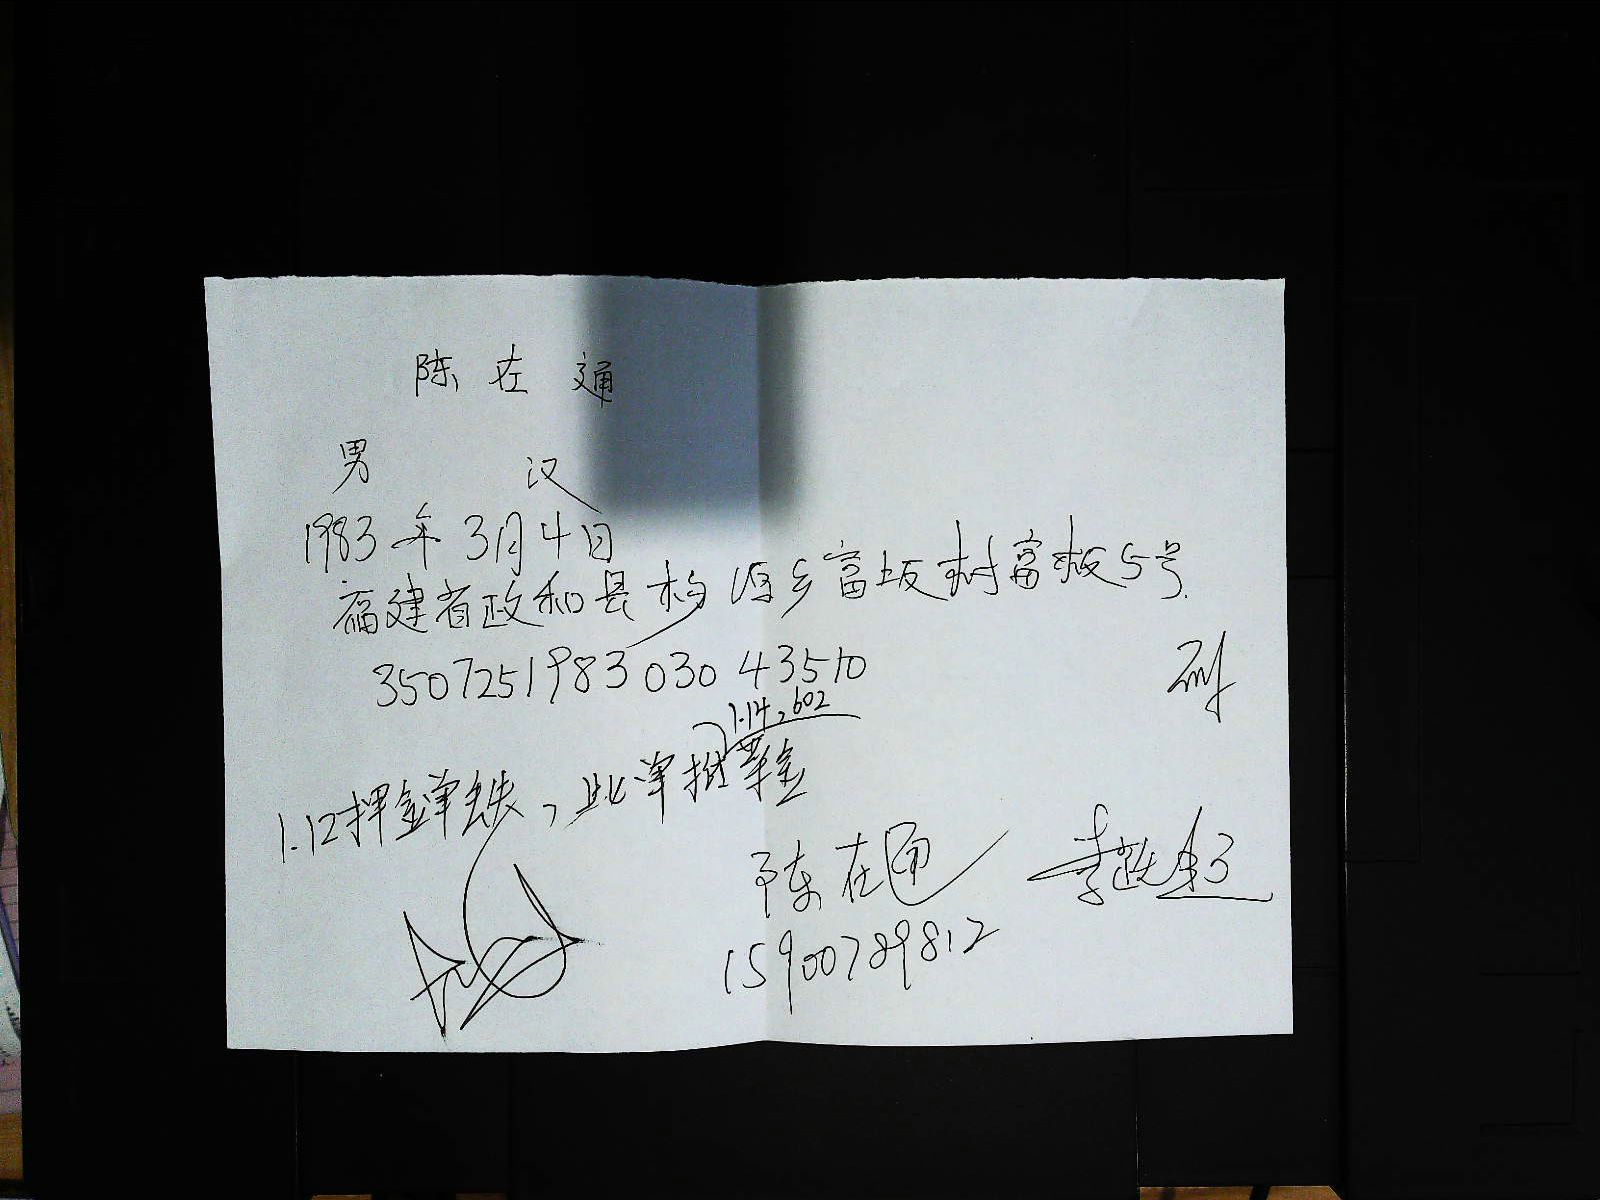 陈在通
男 汉
1983年3月4日
福建省政和县杨源乡富坂村富坂5号.
350725198303043510
1.14,602
1.12押金单丢失,此单抵押金
陈在通
15900789812